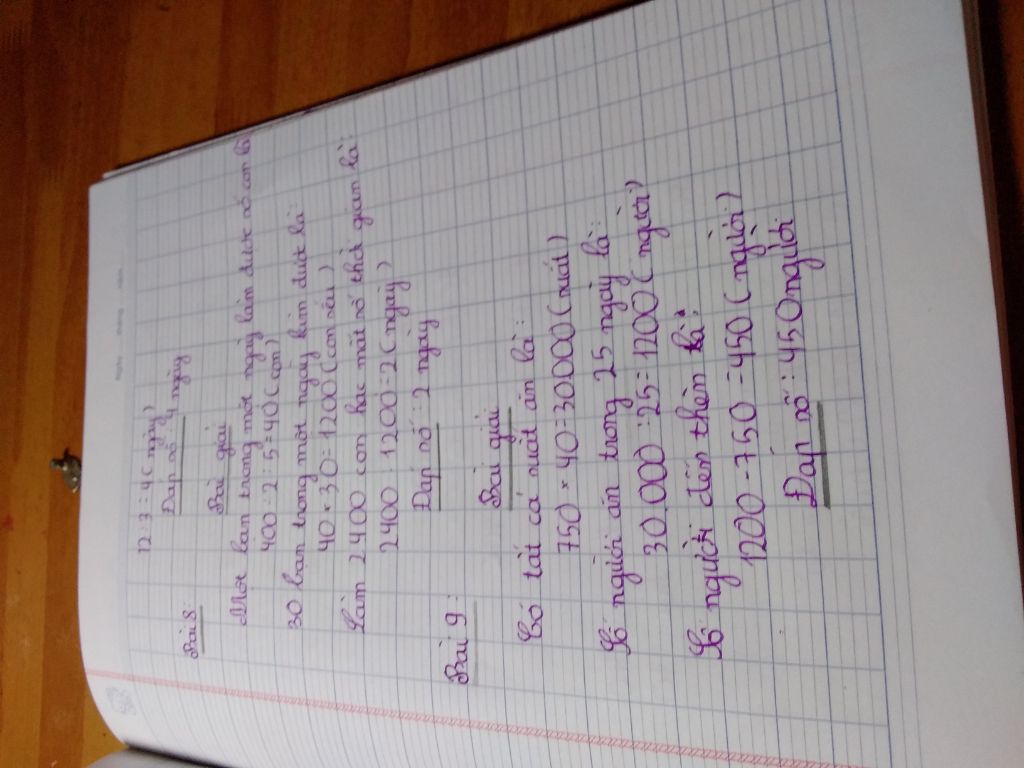 12 : 3 = 4 ( ngày )
Đáp số : 4 ngày
Bài 8:
Bài giải
Một bạn trong một ngày làm được số con là
400 : 2 : 5 = 40 ( con )
30 bạn trong một ngày làm được là :
40 × 30 = 1200 ( con sếu )
Làm 2400 con hạc mất số thời gian là :
2400 : 1200 = 2 ( ngày )
Đáp số : 2 ngày
Bài 9 :
Bài giải
Có tất cả suất ăn là :
750 × 40 = 30000 ( suất )
Số người ăn trong 25 ngày là :
30.000 : 25 = 1200 ( người )
Số người đến thêm là :
1200 - 750 = 450 ( người )
Đáp số : 450 người